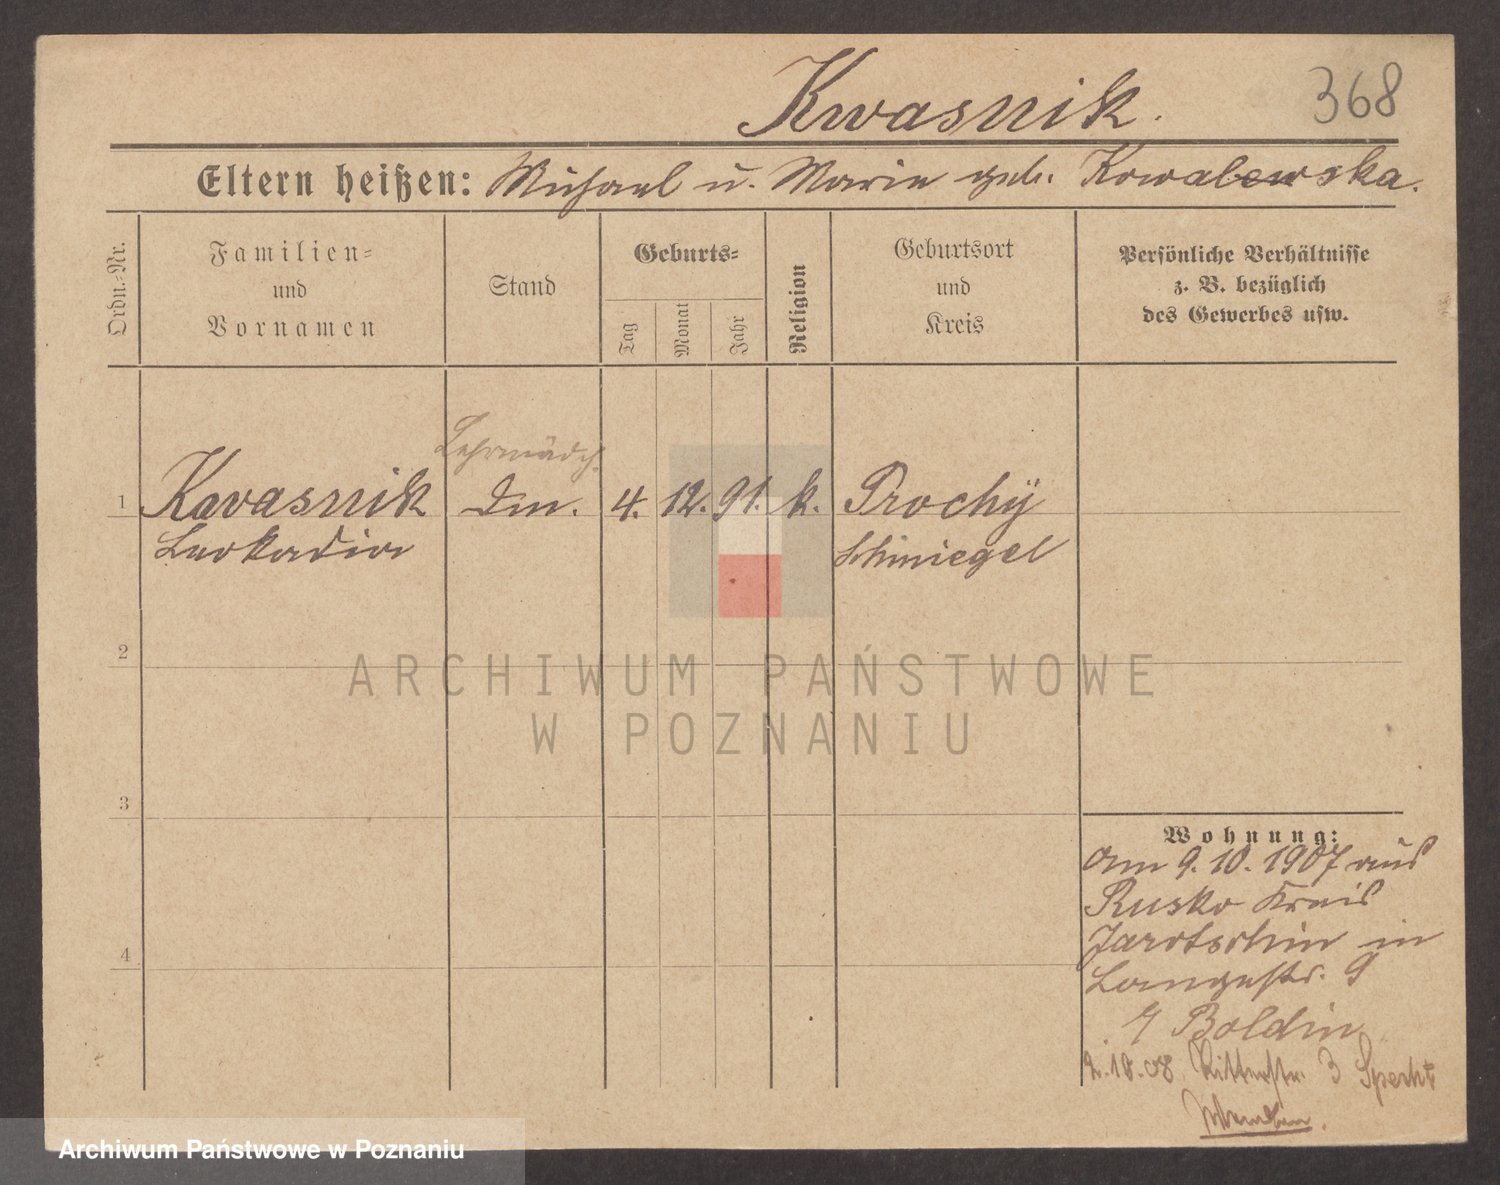 Kwasnik.
368
Eltern heißen: Michael u. Marie geb. Kowalewska.
Ordn.-Nr.
Familien-
und
Vornamen
Stand
Geburts-
Tag
Monat
Jahr
Religion
Geburtsort
und
Kreis
Persönliche Verhältnisse
z. B. bezüglich
des Gewerbes usw.
Lehrmädch.
1 Kwasnik 4. 12. 91. k. Prochÿ
Leokadia Schmiegel
2
ARCHIWUM PAŃSTWOWE
W POZNANIU
3
Wohnung:
Am 9.10.1907 aus
Rusko Kreis
Jarotschin in
4
Langestr. 9
Boldin
2.10.08 Ritterstr. 3 Specht
Archiwum Państwowe w Poznaniu